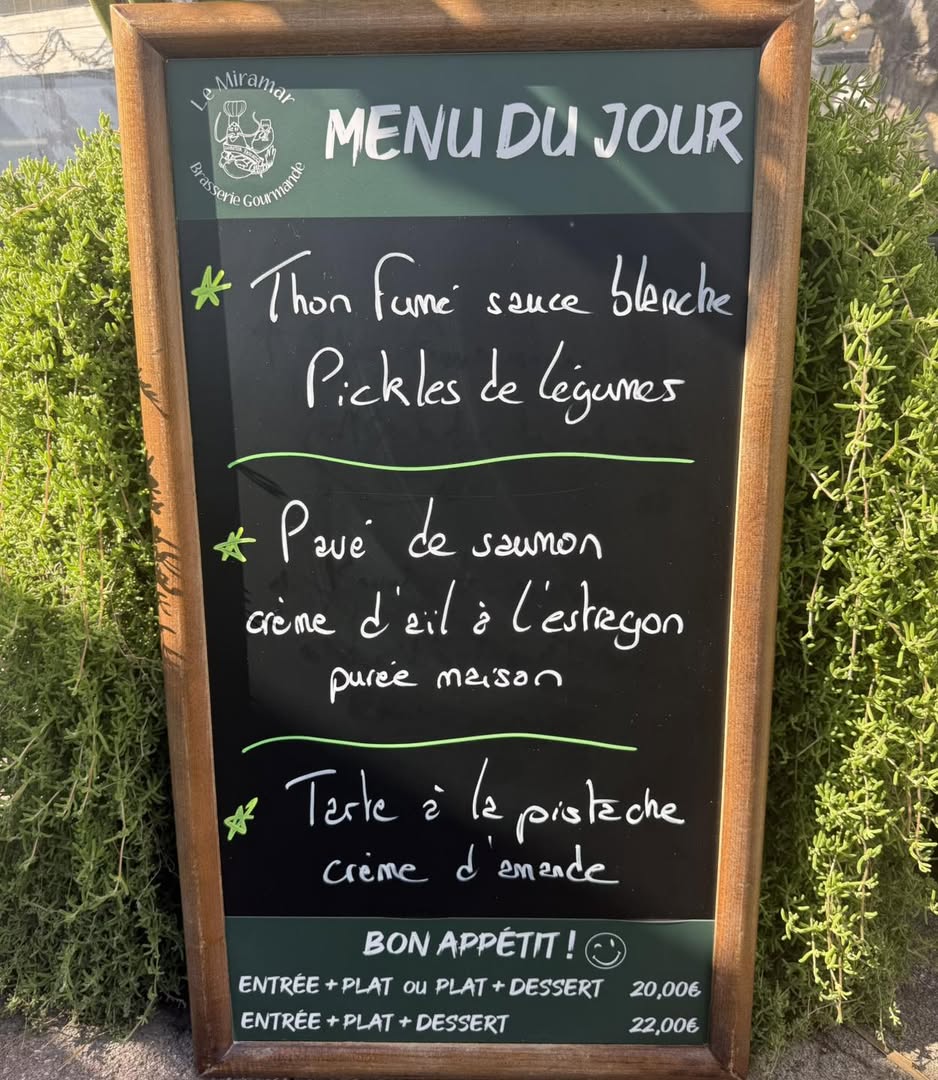 Le Miramar
Brasserie Gourmande
MENU DU JOUR
Thon fumé sauce blanche
Pickles de légumes
Pavé de saumon
crème d'ail à l'estragon
purée maison
Tarte à la pistache
crème d'amande
BON APPÉTIT !
ENTRÉE + PLAT OU PLAT + DESSERT 20,00€
ENTRÉE + PLAT + DESSERT 22,00€